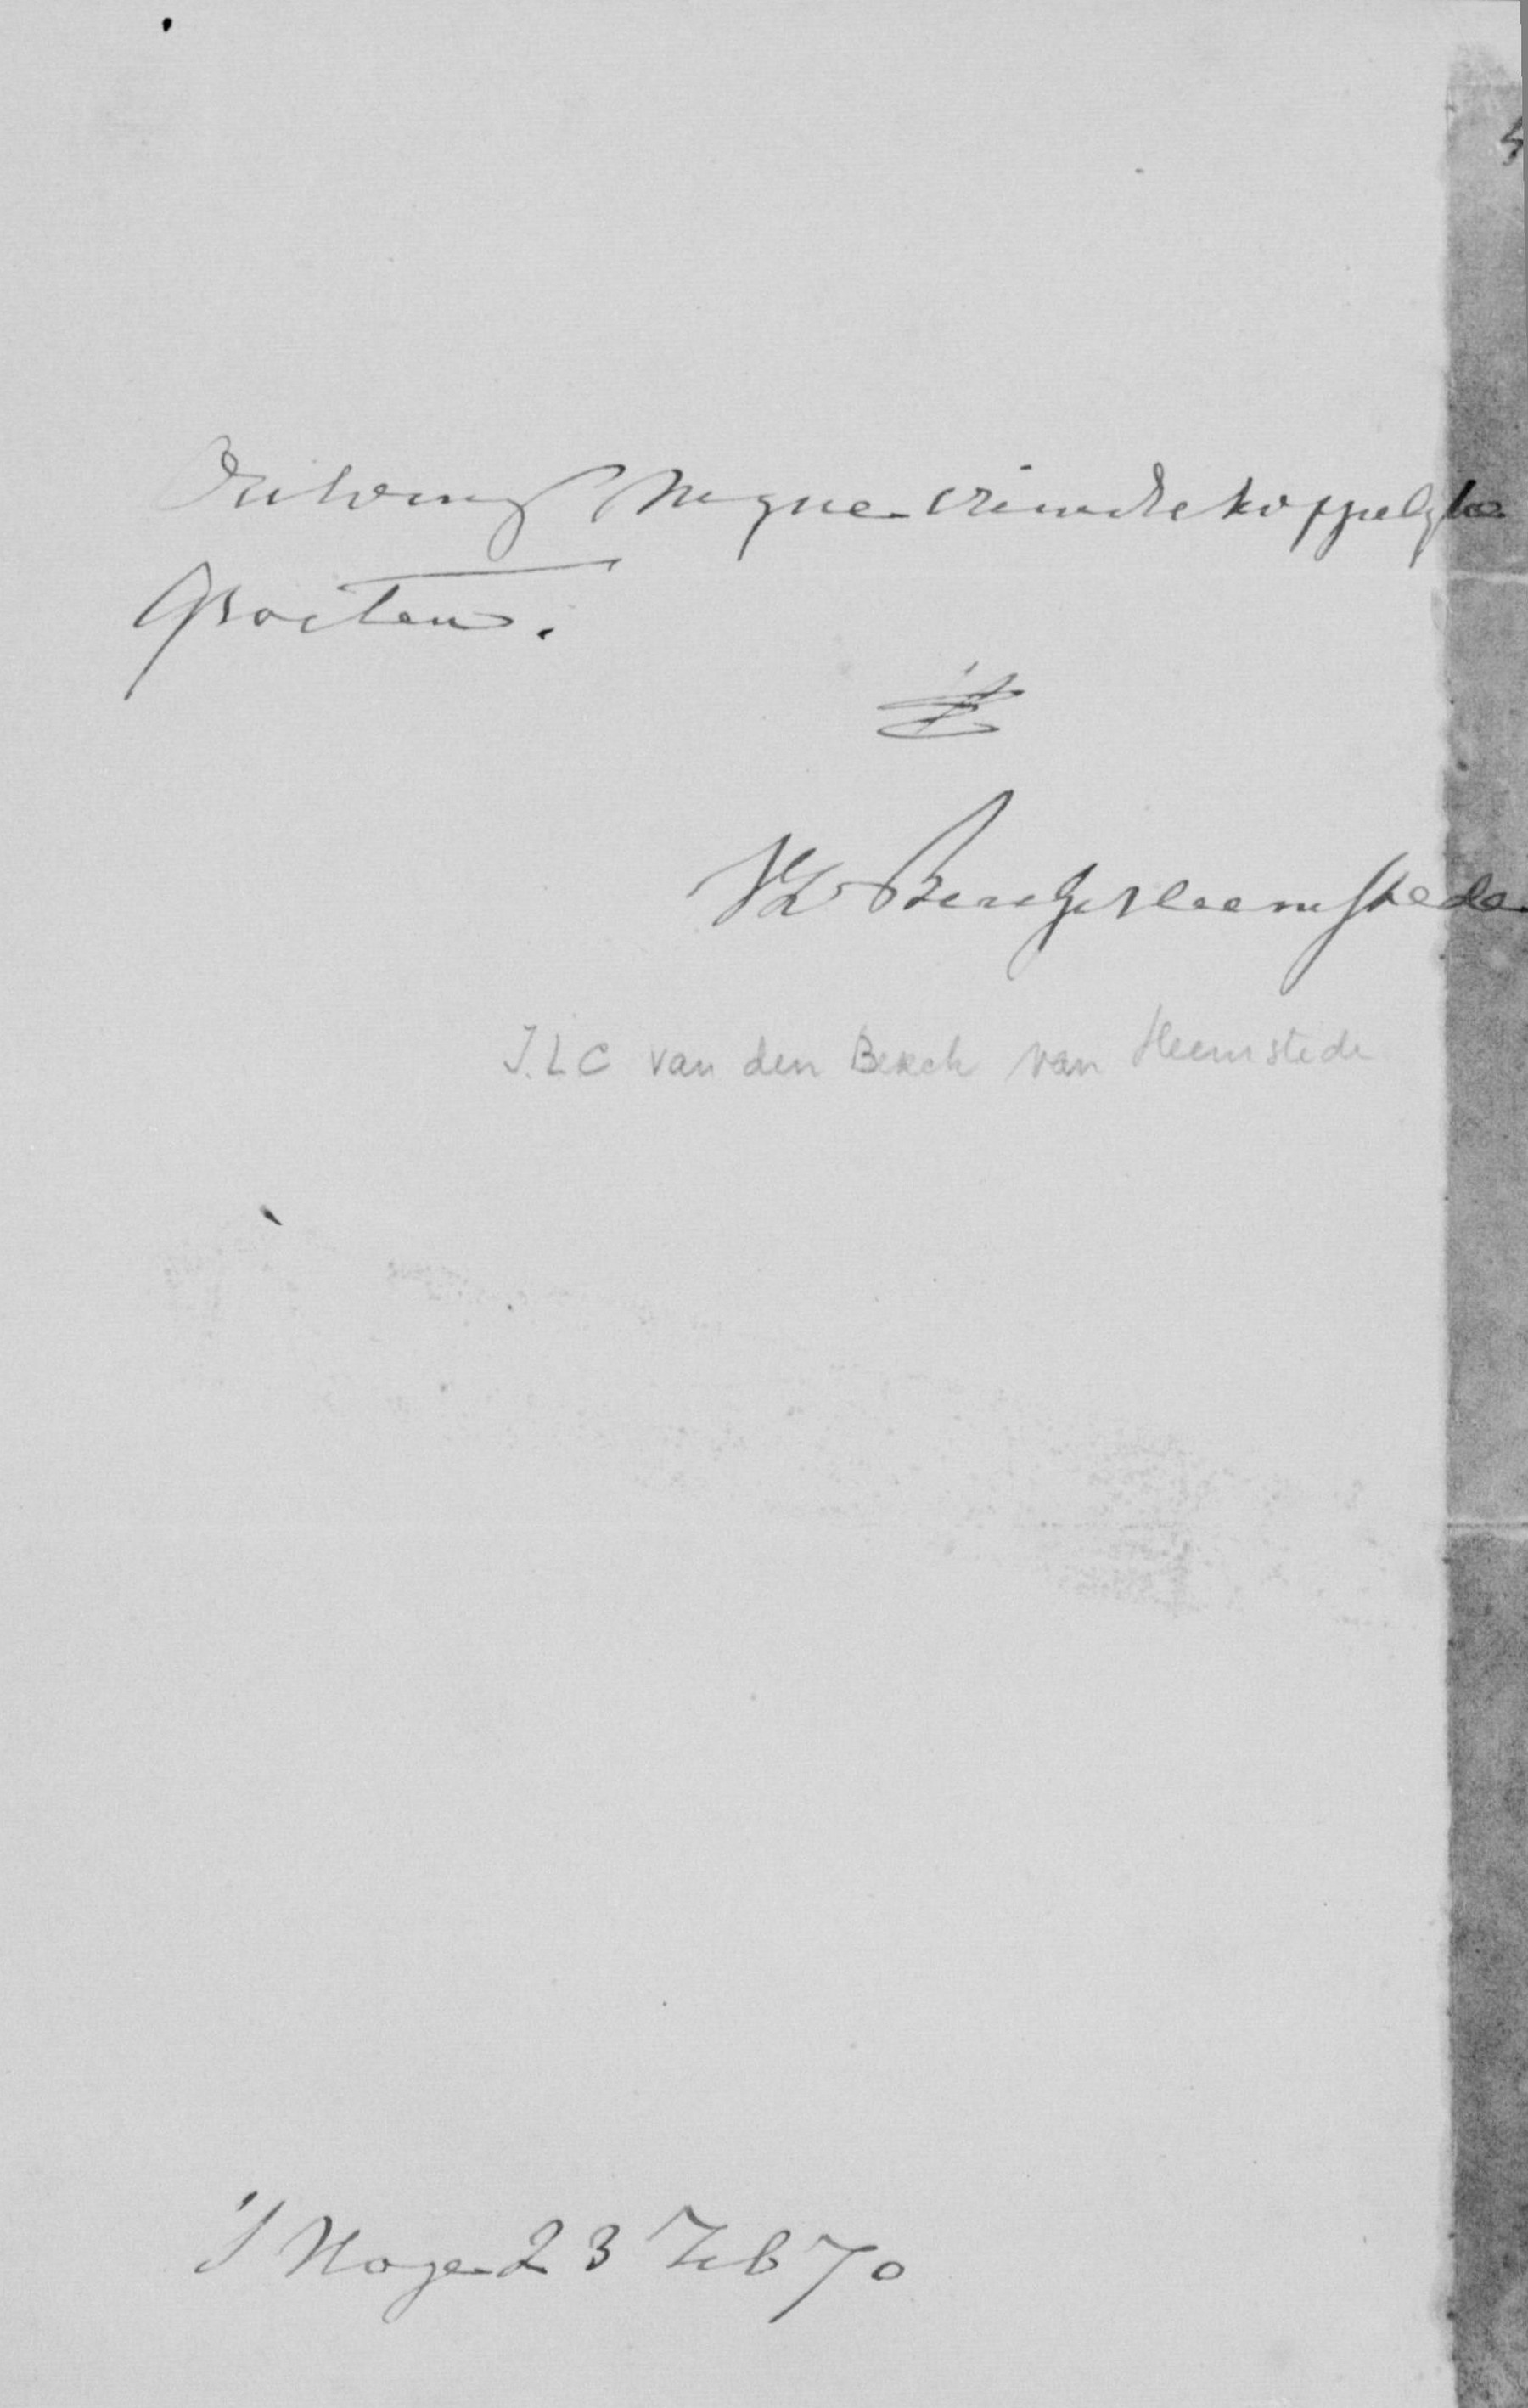 Ontvang mijne vriendschappelyke
Groeten.
vd Berch v Heemstede
J.L.C van den Berch van Heemstede
's Hage 23 Feb 70